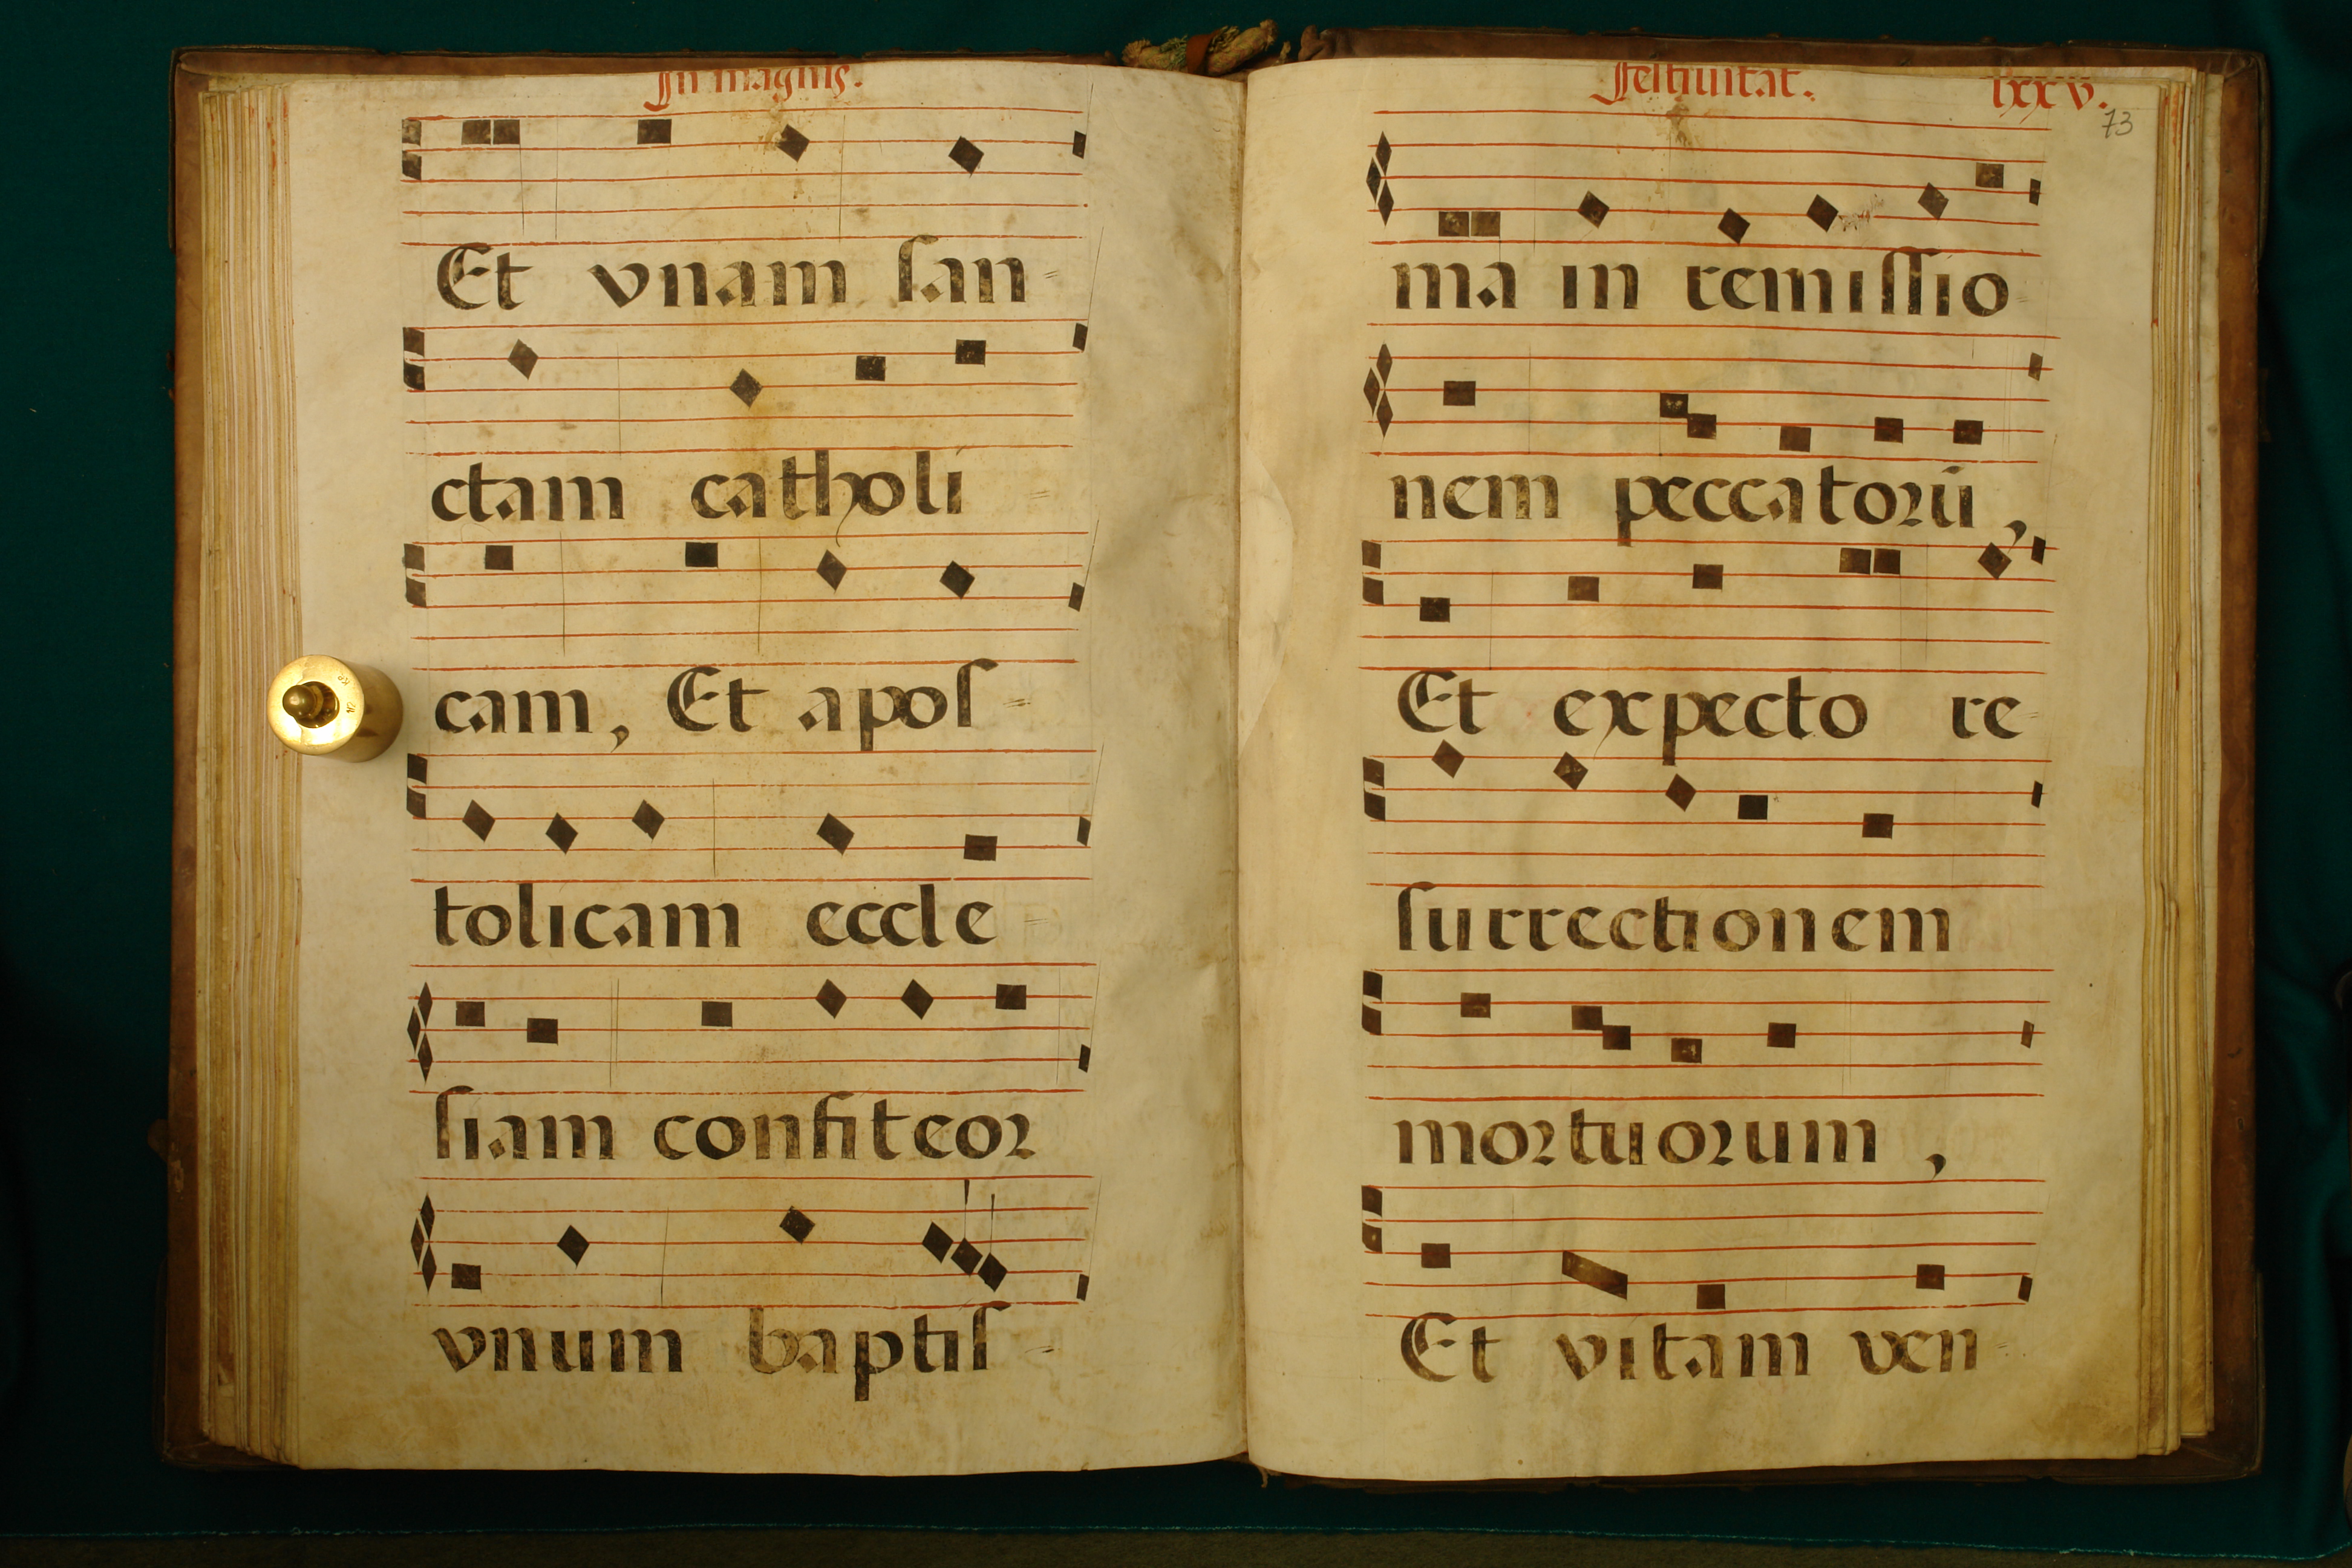 In magnis.
Et vnam san=
ctam catholi=
cam, Et apos=
tolicam eccle=
siam confiteor
vnum baptis=
Festiuitat. lxxv.
73
ma in remissio=
nem peccatorū,
Et expecto re=
surrectionem
mortuorum,
Et vitam ven=